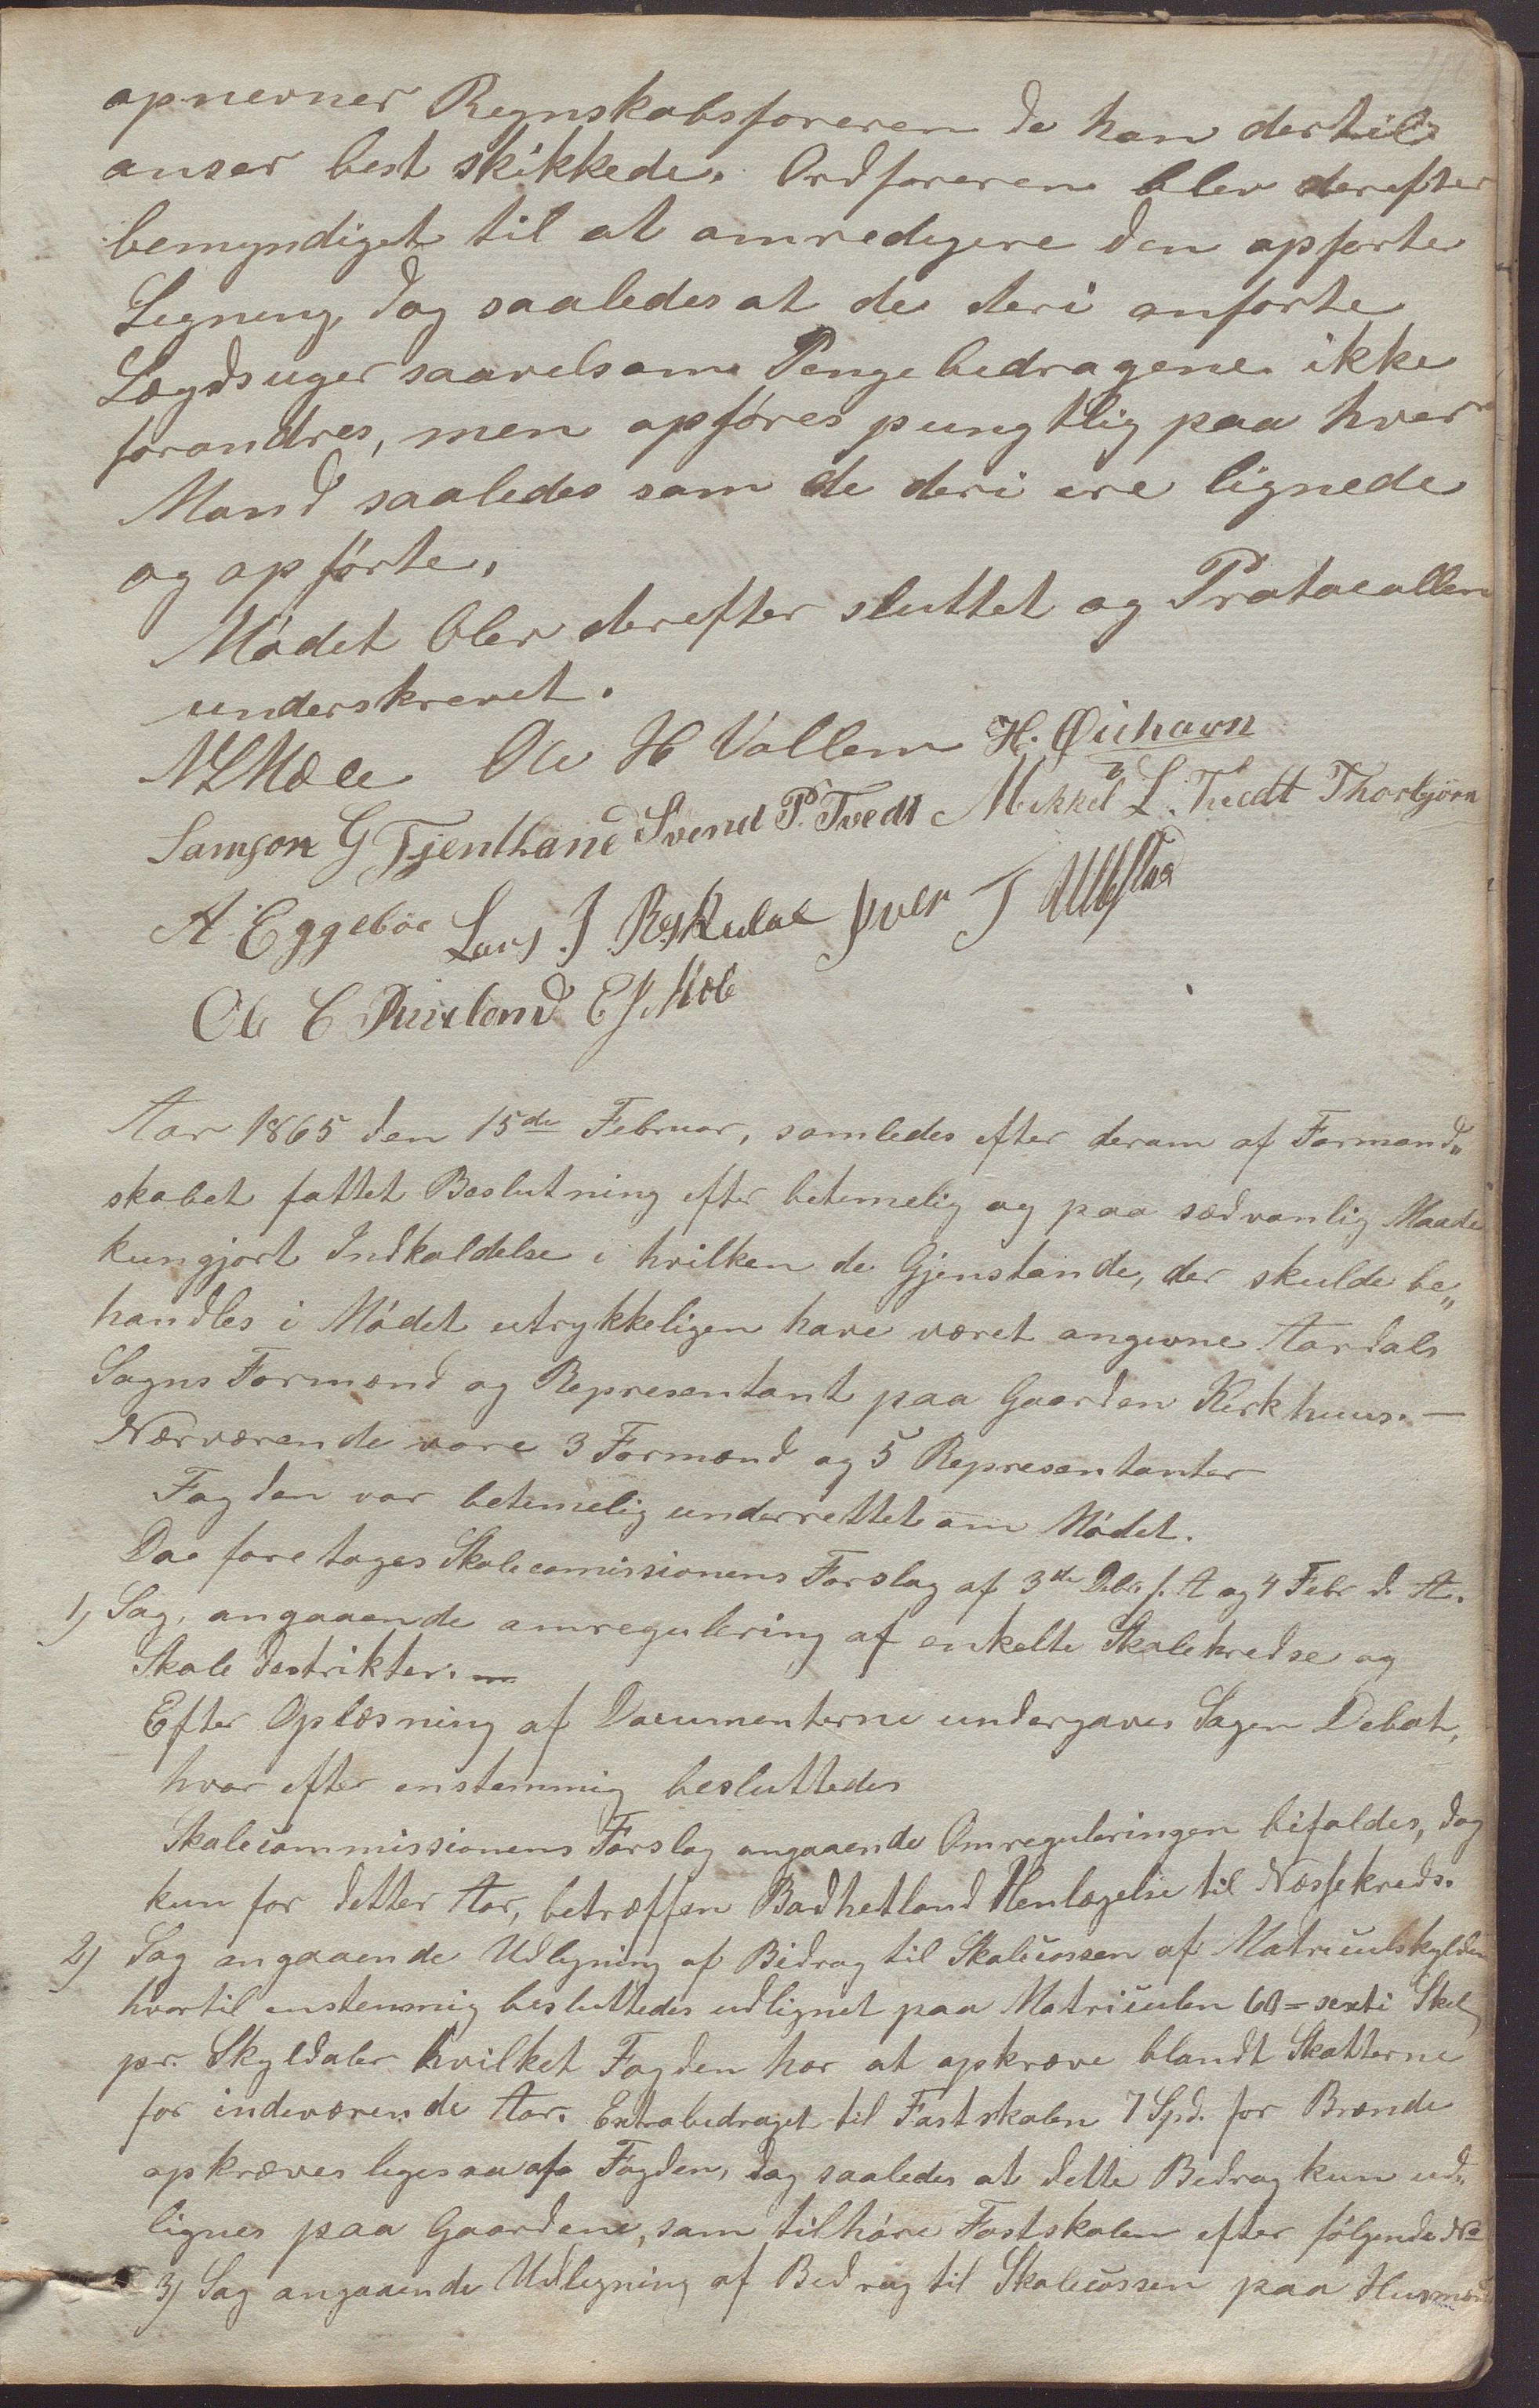 opnevner Regnskabsføreren de han dertil
anser best skikkede. Ordføreren blev derefter
bemyndiget til at omredigere den opførte
Ligning, dog saaledes at de deri anførte
Lægdsuger saavelsom Pengebedragene ikke
forandres, men opføres pungtlig paa hver
Mand saaledes som de deri ere lignede
og opførte.
Mødet blev derefter sluttet og Protocollen
underskrevet.
NLMæle Ole H Vallem H. Øiehavn
Samson G Tjentland Svend P. Tvedt Mikkel L. Tvedt Thorbjørn
A. Eggebøe Lars J. Riskedal Iver T
Ole C E J Mæle
Aar 1865 den 15de Februar, samledes efter derom af Formand„
skabet fattet Beslutning efter betimelig og paa sædvanlig Maade
kungjort Indkaldelse i hvilken de Gjenstande, der skulde be„
handles i Mødet utrykkeligen have været angivne Aardals
Sogns Formænd og Representant paa Gaarden Kirkhuus. —
Nærværende vare 3 Formænd og 5 Representanter
Fogden var betimelig underrettet om Mødet.
Da foretoges Skolecomissionens Forslag af 3de Debr. f. A og 4 Febr d. A.
1) Sag, angaaende omregulering af enkelte Skolekredse og
Skoledestrikter. —
Efter Oplæsning af Documenterne undergaves Sagen Debat,
hvor efter enstemmig besluttedes
Skolecommissionens Forslag angaaende Omreguleringen bifaldes, dog
kun for detter Aar, betræffen Badhetland Henlægelse til Næssekreds.
2) Sag angaaende Udligning af Bidrag til Skolecassen af Matriculskylden
hvortil enstemmig besluttedes udlignet paa Matriculen 60 = sexti Skil
pr. Skyldaler hvilket Fogden har at opkræve blandt Skatterne
for indeværende Aar. Extrabedraget til Fastskolen 7 Spd. for Brænde
opkræves ligesaa af Fogden, dog saaledes at dette Bedrag kun ud„
lignes paa Gaardene, som tilhøre Fastskolen efter følgende No
3) Sag angaaende Udligning af Bedrag til Skolecassen paa Husmænd